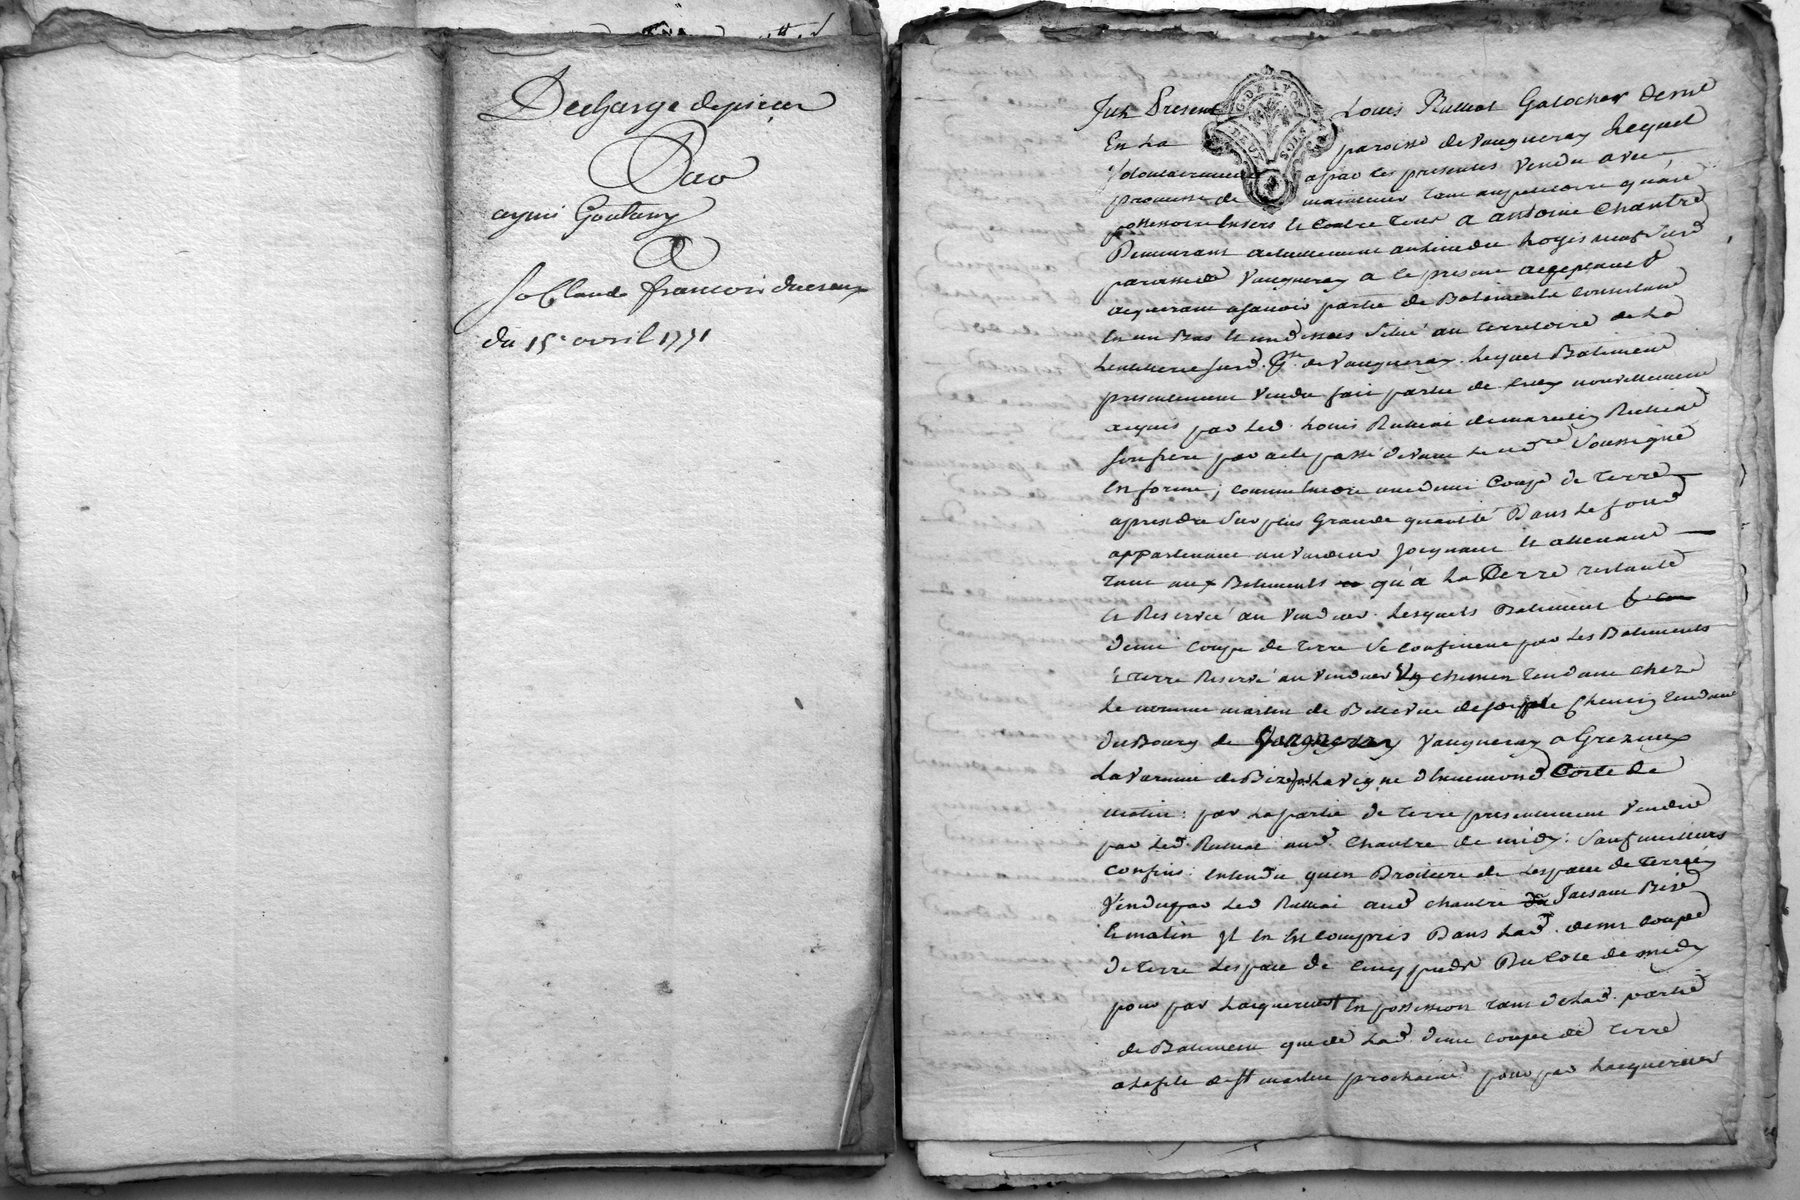 Decharge de pieces
Par
aymé Goutany
A
Sr Claude francois ducreux
du 15e avril 1771
G. DE LYON
DEUX SOLS
Fut Present Louis Rulliat Galocher demt
En La paroisse de Vaugneray Lequel
Volontairement a par les presentes Vendu avec
promesse de maintenir tant au petitoire qu'au
possessoire Envers Et Contre Tous A antoine Chantre
Demeurant actuellement au lieu du Logis neuf susd
paroisse de Vaugneray a ce present acceptant &
acquerant asavoir partie de Batiments Consistant
En un Bas Et un dessus Situé au territoire de La
susd. psse de Vaugneray. Lequel Batiment
presentement Vendu fait partie de Ceux nouvellement
acquis par Led. Louis Rulliat de Rulliat
son frere par acte passé devant Le nre Soussigné
En forme; comme Encore une demi Coupé de terre
aprendre Sur plus Grande quantité Dans Le fond
appartenant au Vendeur Joignant Et attenant
tant aux Batiments qu'a La Terre restante
Et Reservé au Vendeur. Lesquels Batiment &
demi coupé de terre Se confinent par Les Batiments
& terre Reservé au Vendeur chemin tendant chez
Le nommé martin de Bellevue de soir Le Chemin tendant
du Bourg de Vaugneray a Grezieux
La Varenne de Bize La Vigne d'Ennemond Coste de
matin: par La partie de terre presentement Vendue
par Led. Rulliat aud. Chantre de midy: Sauf meilleurs
confins: entendu quen Droiture de Lespace de terrein
Vendu par Led Rulliat aud chantre faisant Bize
& matin Il En Est Compris Dans Lad. demi coupé
de terre Lespace de Cinq pieds Du Coté de midy
pour par Lacquereur En possession tant de Lad. partie
de Batiment que de Lad. demi coupé de terre
a La fete de St martin prochaine pour par Lacquereur